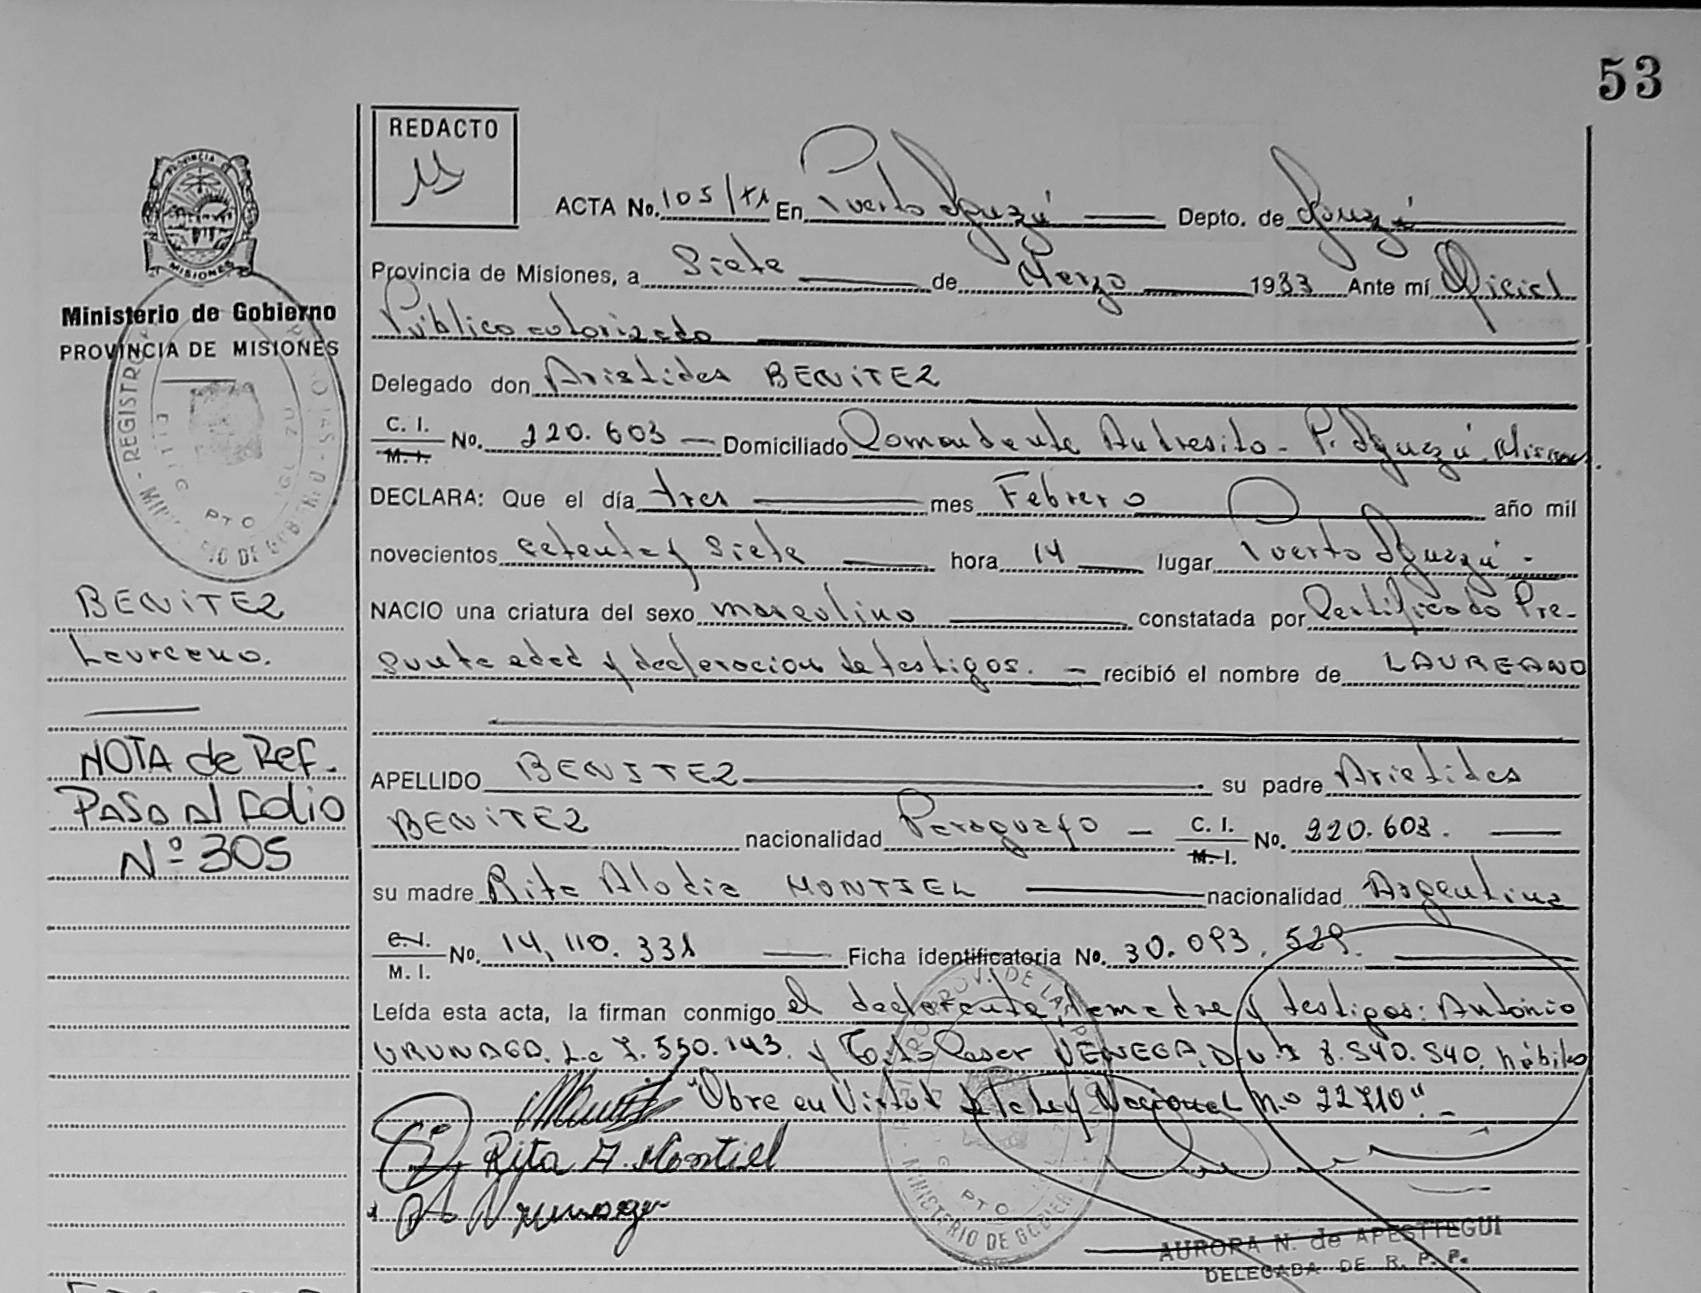 53
REDACTO
PROVINCIA DE
MISIONES
ACTA No. 105/ En Puerto Iguazú Depto. de Iguazú
Provincia de Misiones, a Siete de Marzo 1983 Ante mí Oficial
Público autorizado
Ministerio de Gobierno
PROVINCIA DE MISIONES
Delegado don Aristides BENITEZ
C. I. No. 220.603 Domiciliado Comandante Andresito - P. Iguazú. Misiones.
M. I.
DECLARA: Que el día tres mes Febrero año mil
novecientos setenta y siete hora 14 lugar Puerto Iguazú -
NACIO una criatura del sexo masculino constatada por Certificado Pre-
sunta edad y declaracion de testigos. - recibió el nombre de LAUREANO
BENITEZ
Laureano.
NOTA de Ref.
PASA Al Folio
Nº 305
APELLIDO BENITEZ su padre Aristides
BENITEZ nacionalidad Paraguayo - C. I. No. 220.603.
M. I.
su madre Rita Alodia MONTIEL nacionalidad Argentina
C. I. No. 14.110.331 Ficha identificatoria No. 30.093.529.
M. I.
Leída esta acta, la firman conmigo el declarante, la madre y testigos: Antonio
URUNAGA. L.E 7.550.143. y Cesar VENEGA, D.N.I 8.540.540. hábiles
"Obre en Virtud de la Ley Nacional n.º 22710". -
Rita A. Montiel
AURORA N. de APESTTEGUI
DELEGADA DE R. P. P.